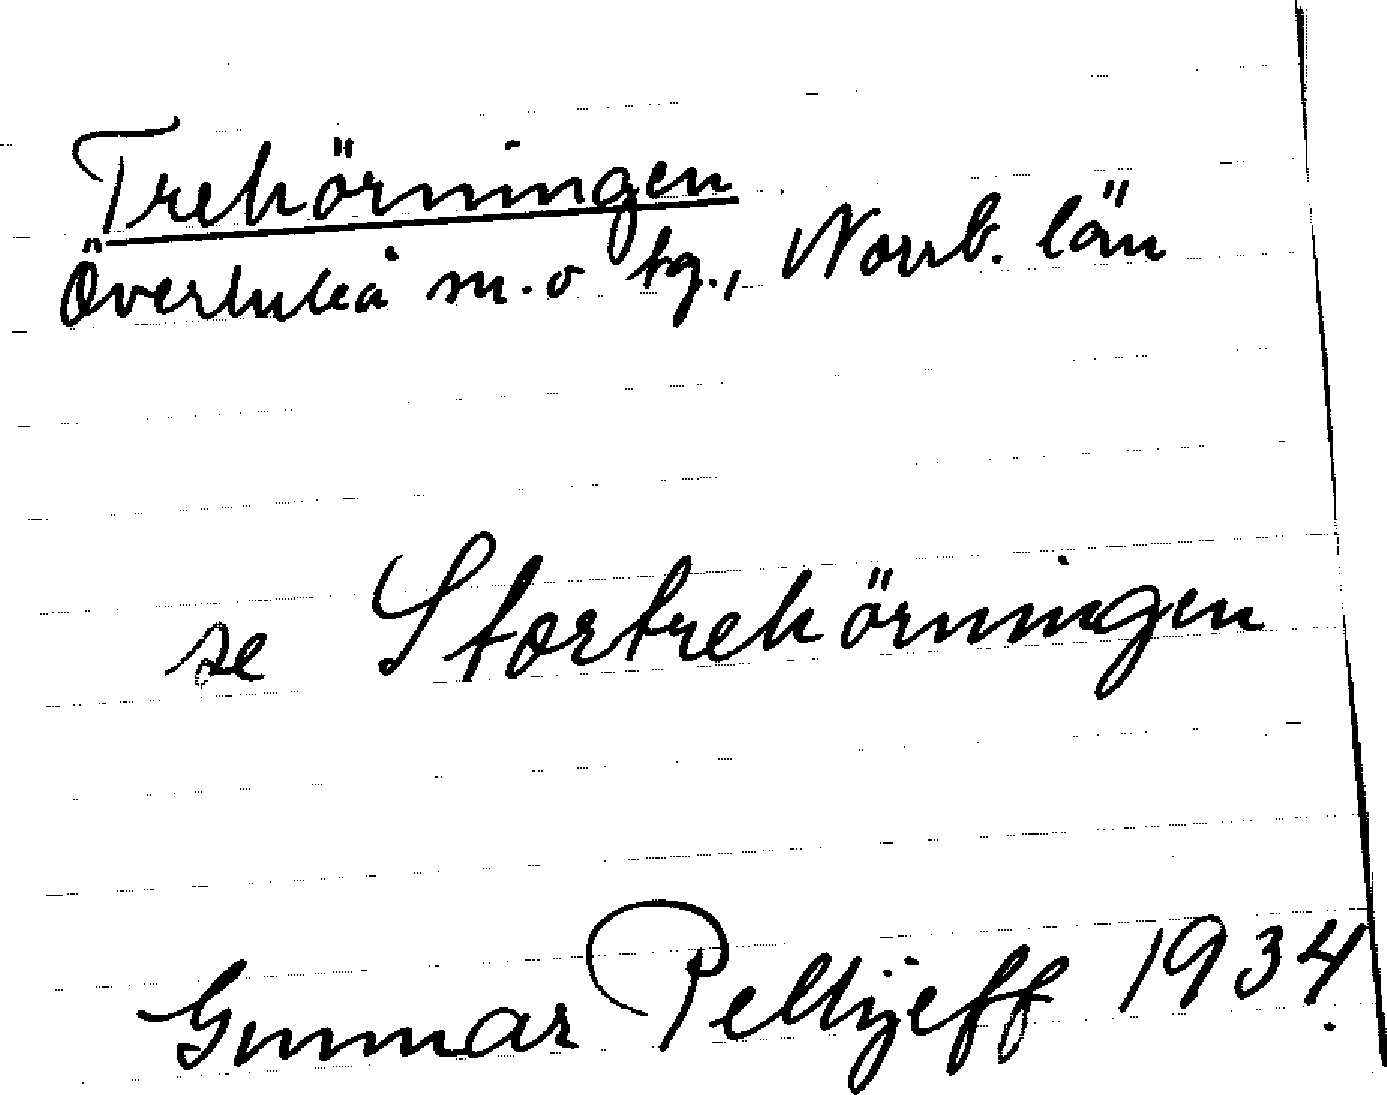 Trehörningen
Överluleå m. o tg., Norrb. län
se Stortrehörningen
Gunnar Pellijeff 1934.